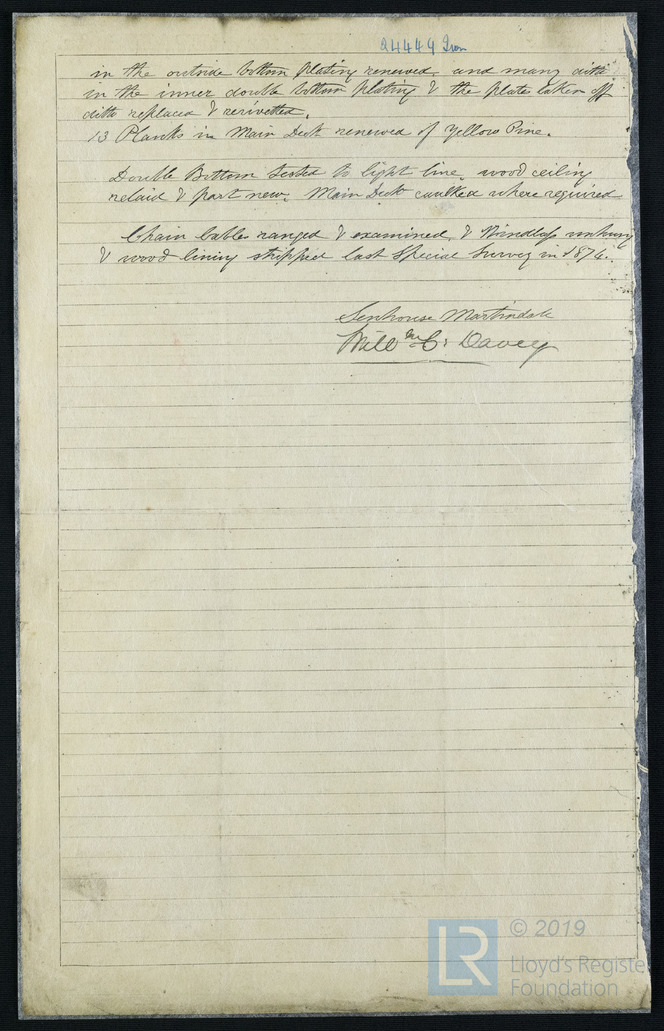 24449 Iron
in the outside bottom plating renewed, and many ditto
in the inner double bottom plating & the plates taken off
ditto replaced & rerivetted.
13 Planks in Main Deck renewed of Yellow Pine.
Double Bottom tested to light line, wood ceiling
relaid & part new. Main Deck caulked where required
Chain Cables ranged & examined, & Windlass unhung
& wood lining stripped last Special Survey in 1876.
Senhouse Martindale
Will<sup>m</sup> C. Davey
LR
© 2019
Lloyd's Registe
Foundation